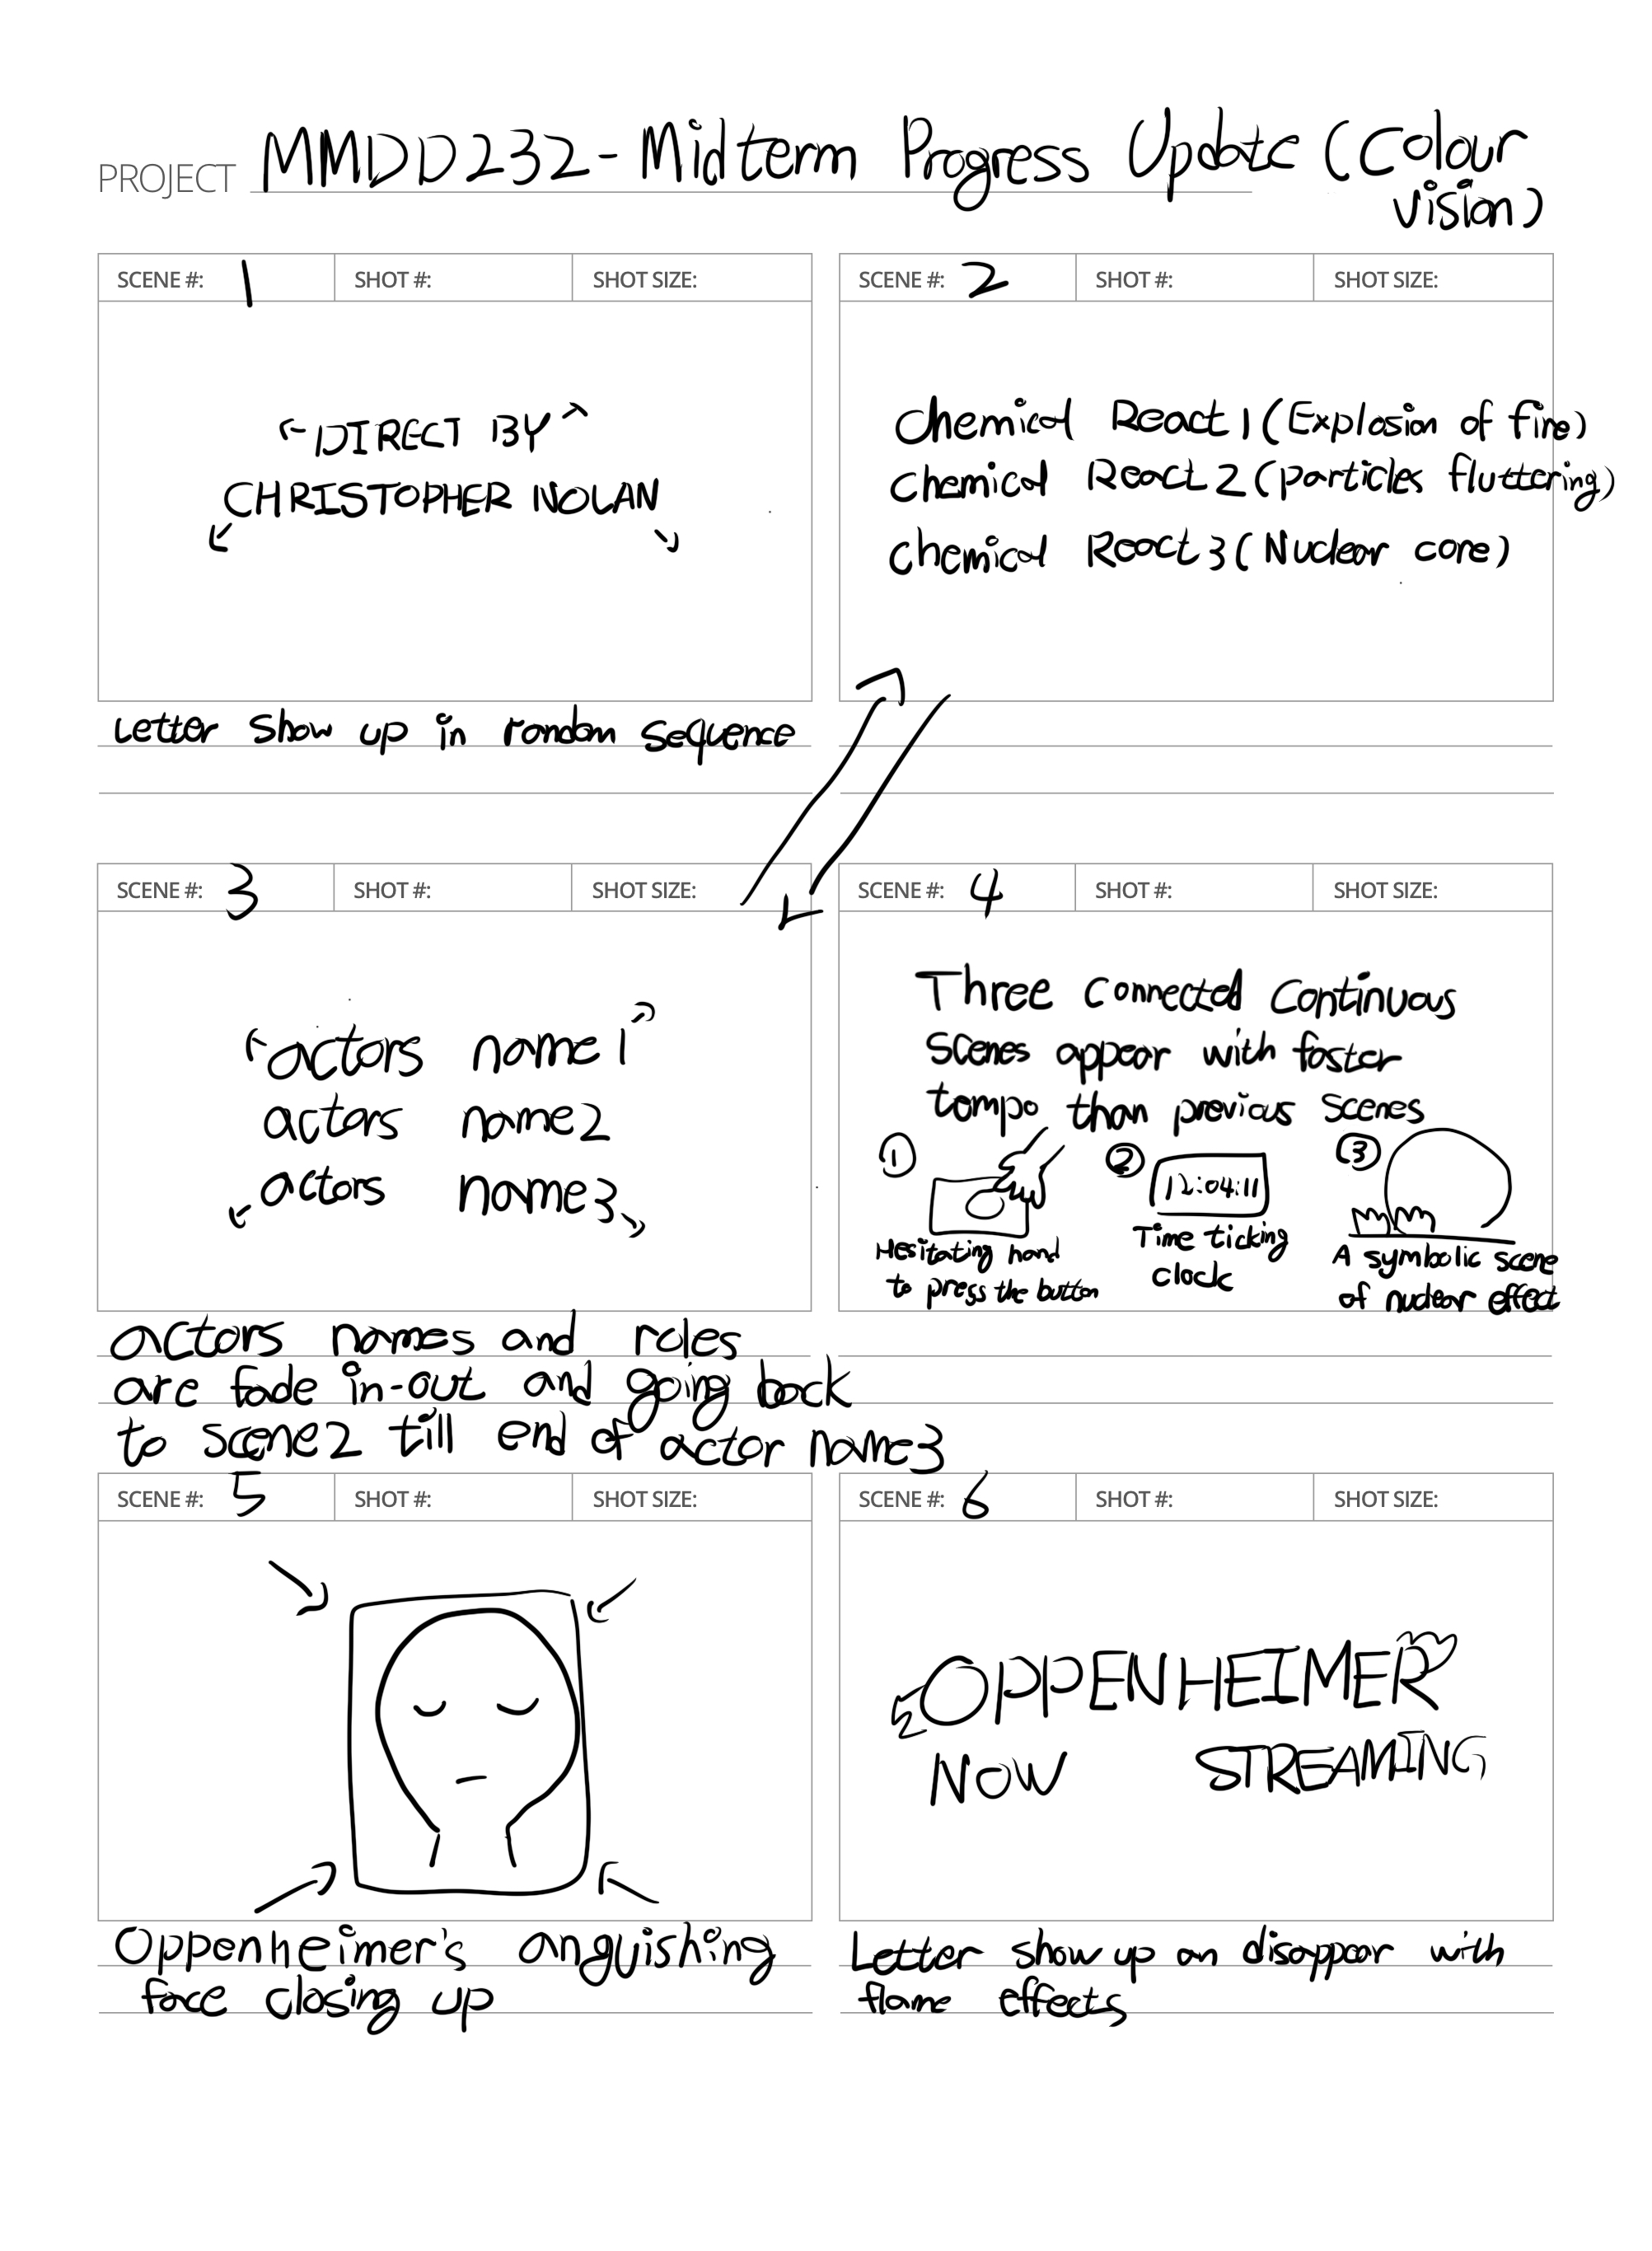 PROJECT MMDD232 - Midterm Progress Update (Colour
vision)
SCENE #: 1 SHOT #: SHOT SIZE:
DIRECT BY
CHRISTOPHER NOLAN
Letter show up in random sequence
SCENE #: 2 SHOT #: SHOT SIZE:
Chemical React 1 (Explosion of fire)
Chemical React 2 (particles fluttering)
Chemical React 3 (Nuclear core)
SCENE #: 3 SHOT #: SHOT SIZE:
actors name 1
actors name2
actors name3
actors names and roles
are fade in-out and going back
to scene2 till end of actor name3
SCENE #: 4 SHOT #: SHOT SIZE:
Three connected continuous
scenes appear with faster
tempo than previous scenes
① ② ③
12:04:11
Hesitating hand
to press the button
Time ticking
clock
A symbolic scene
of nuclear effect
SCENE #: 5 SHOT #: SHOT SIZE:
Oppenheimer's anguishing
face closing up
SCENE #: 6 SHOT #: SHOT SIZE:
OPPENHEIMER
NOW STREAMING
Letter show up an disappear with
flame effects